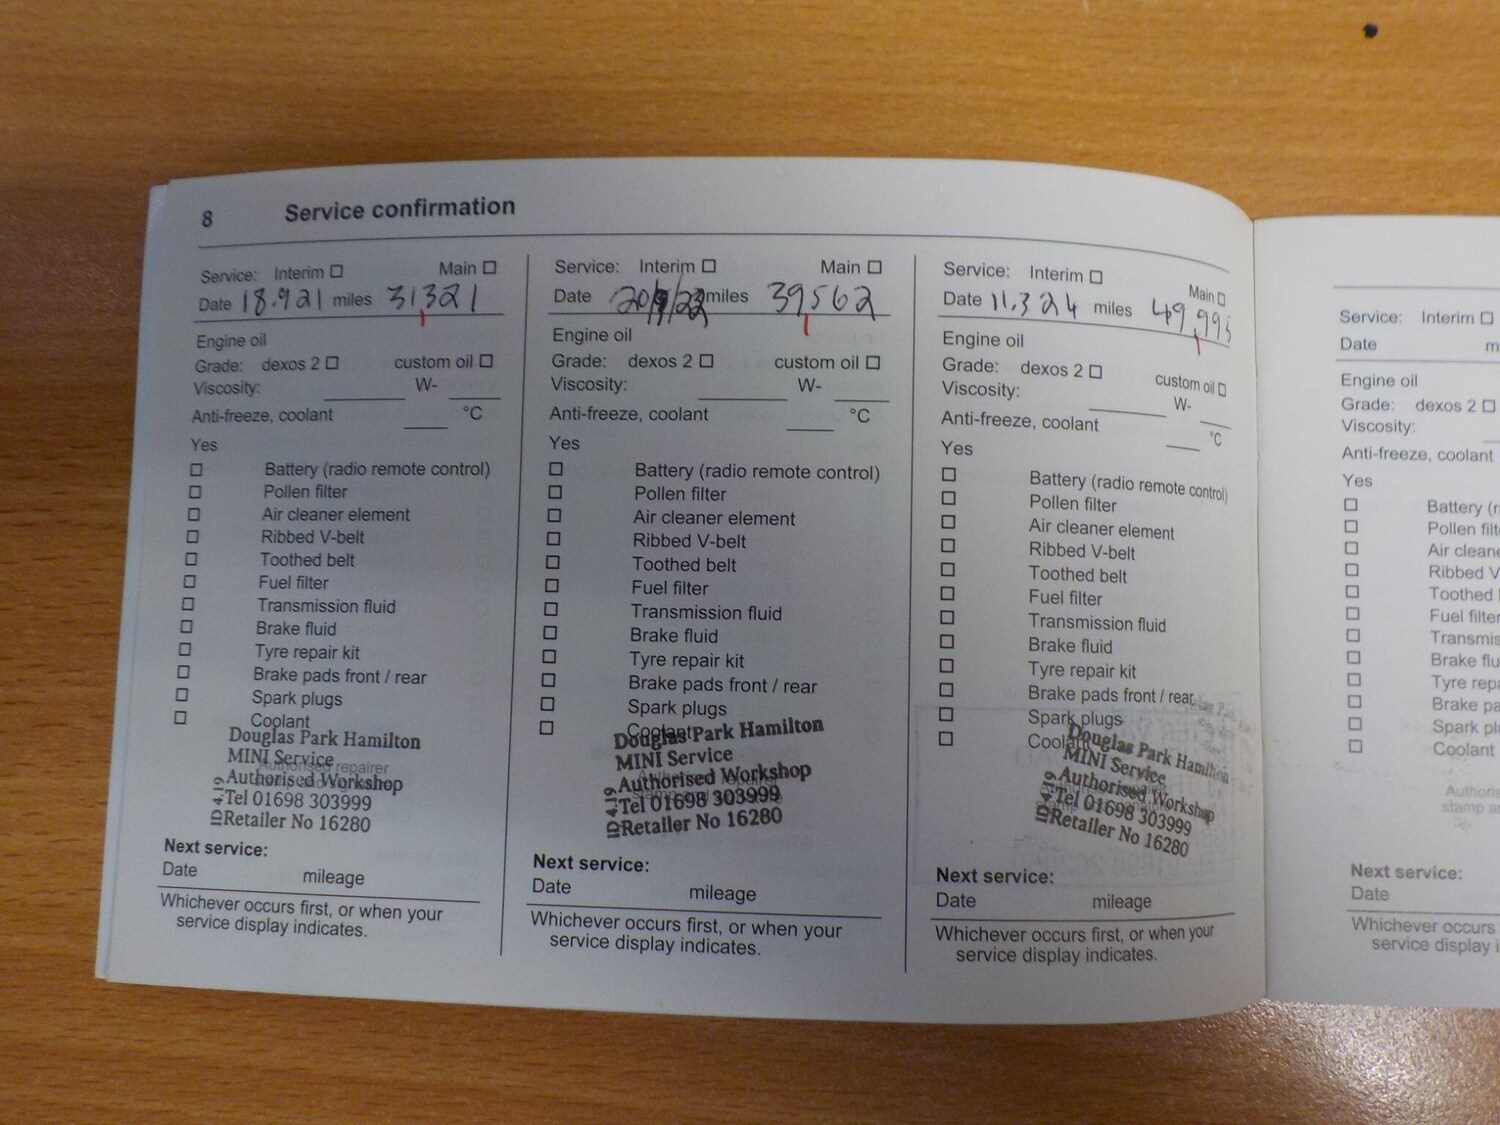 8 Service confirmation
Service: Interim ☐ Main ☐
Date 18.9.21 miles 31,321
Engine oil
Grade: dexos 2 ☐ custom oil ☐
Viscosity: W-
Anti-freeze, coolant °C
Yes
☐ Battery (radio remote control)
☐ Pollen filter
☐ Air cleaner element
☐ Ribbed V-belt
☐ Toothed belt
☐ Fuel filter
☐ Transmission fluid
☐ Brake fluid
☐ Tyre repair kit
☐ Brake pads front / rear
☐ Spark plugs
☐ Coolant
Douglas Park Hamilton
MINI Service
Authorised repairer
Authorised Workshop
Tel 01698 303999
Retailer No 16280
Next service:
Date mileage
Whichever occurs first, or when your
service display indicates.
Service: Interim ☐ Main ☐
Date miles 39,562
Engine oil
Grade: dexos 2 ☐ custom oil ☐
Viscosity: W-
Anti-freeze, coolant °C
Yes
☐ Battery (radio remote control)
☐ Pollen filter
☐ Air cleaner element
☐ Ribbed V-belt
☐ Toothed belt
☐ Fuel filter
☐ Transmission fluid
☐ Brake fluid
☐ Tyre repair kit
☐ Brake pads front / rear
☐ Spark plugs
☐ Coolant
Douglas Park Hamilton
MINI Service
Authorised Workshop
Tel 01698 303999
Retailer No 16280
Next service:
Date mileage
Whichever occurs first, or when your
service display indicates.
Service: Interim ☐ Main ☐
Date 11.3.24 miles 49,995
Engine oil
Grade: dexos 2 ☐ custom oil ☐
Viscosity: W-
Anti-freeze, coolant °C
Yes
☐ Battery (radio remote control)
☐ Pollen filter
☐ Air cleaner element
☐ Ribbed V-belt
☐ Toothed belt
☐ Fuel filter
☐ Transmission fluid
☐ Brake fluid
☐ Tyre repair kit
☐ Brake pads front / rear
☐ Spark plugs
☐ Coolant
Douglas Park Hamilton
MINI Service
Authorised Workshop
Tel 01698 303999
Retailer No 16280
Next service:
Date mileage
Whichever occurs first, or when your
service display indicates.
Service: Interim ☐
Date m
Engine oil
Grade: dexos 2 ☐
Viscosity:
Anti-freeze, coolant
Yes
☐ Battery (r
☐ Pollen filt
☐ Air clean
☐ Ribbed V
☐ Toothed
☐ Fuel filter
☐ Transmis
☐ Brake flu
☐ Tyre repa
☐ Brake pa
☐ Spark pl
☐ Coolant
Authoris
stamp a
Next service:
Date
Whichever occurs
service display i